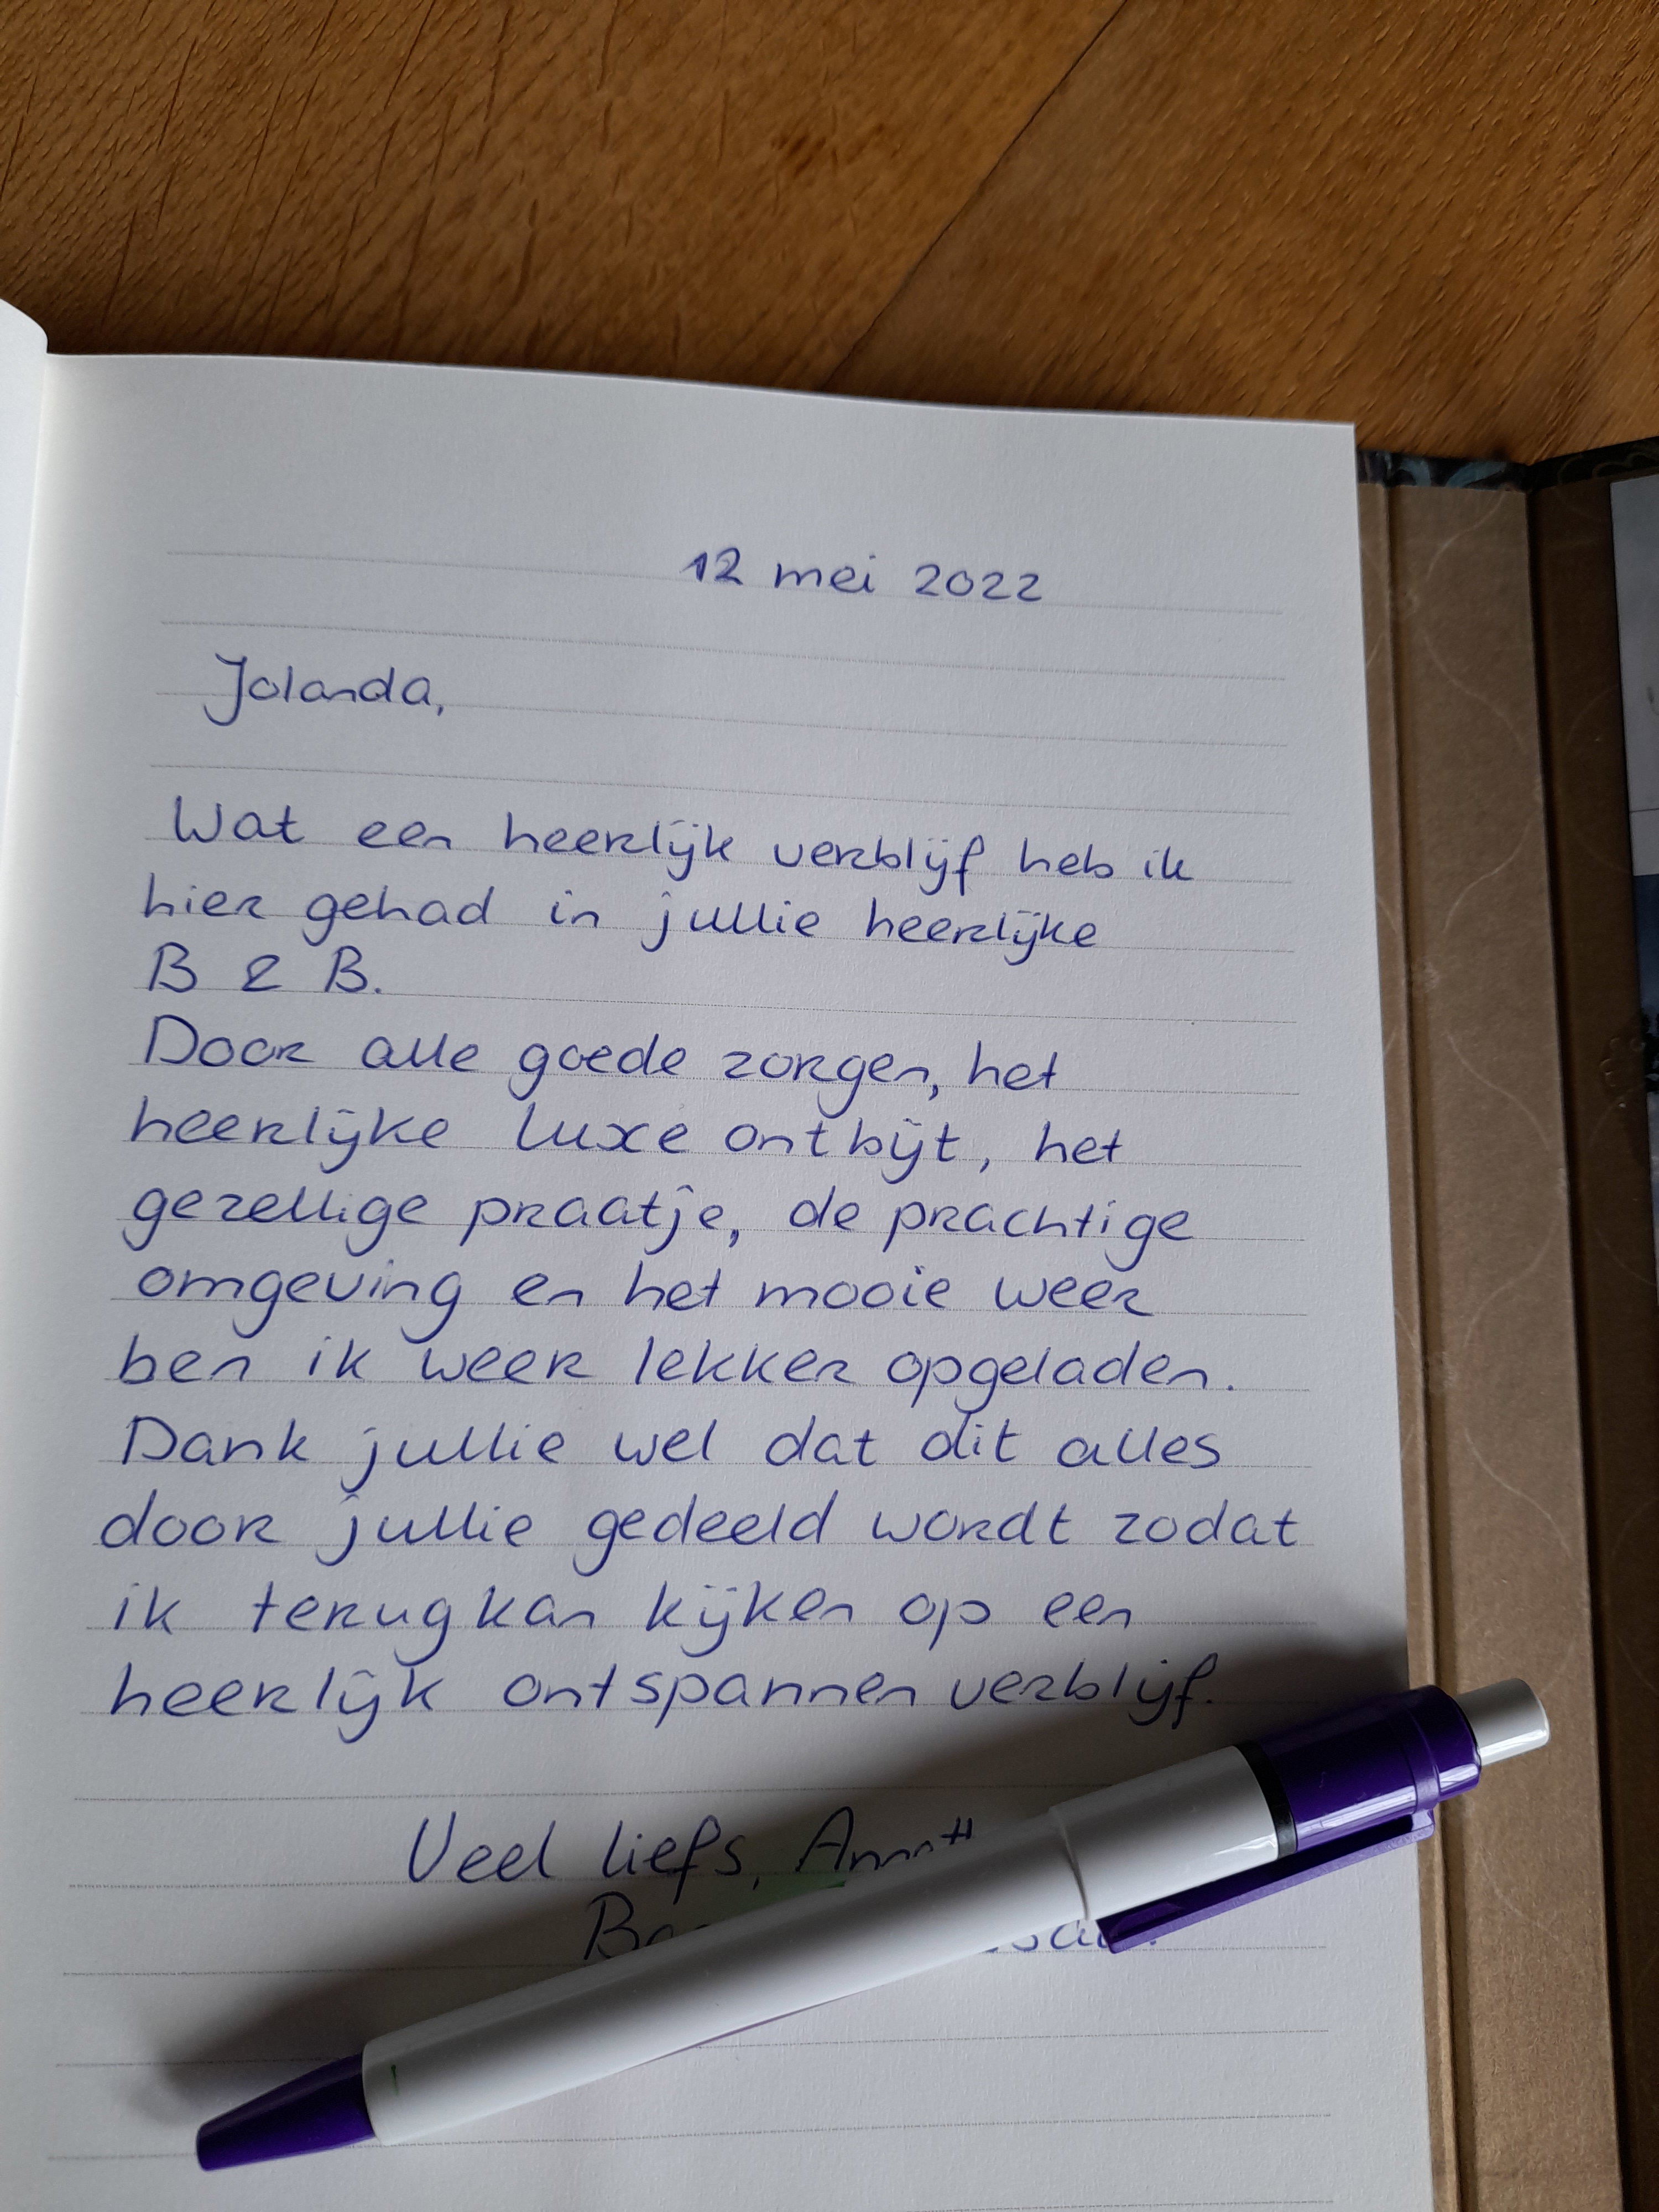 12 mei 2022
Jolanda,
Wat een heerlijk verblijf heb ik
hier gehad in jullie heerlijke
B & B.
Door alle goede zorgen, het
heerlijke luxe ontbijt, het
gezellige praatje, de prachtige
omgeving en het mooie weer
ben ik weer lekker opgeladen.
Dank jullie wel dat dit alles
door jullie gedeeld wordt zodat
ik terug kan kijken op een
heerlijk ontspannen verblijf.
Veel liefs,